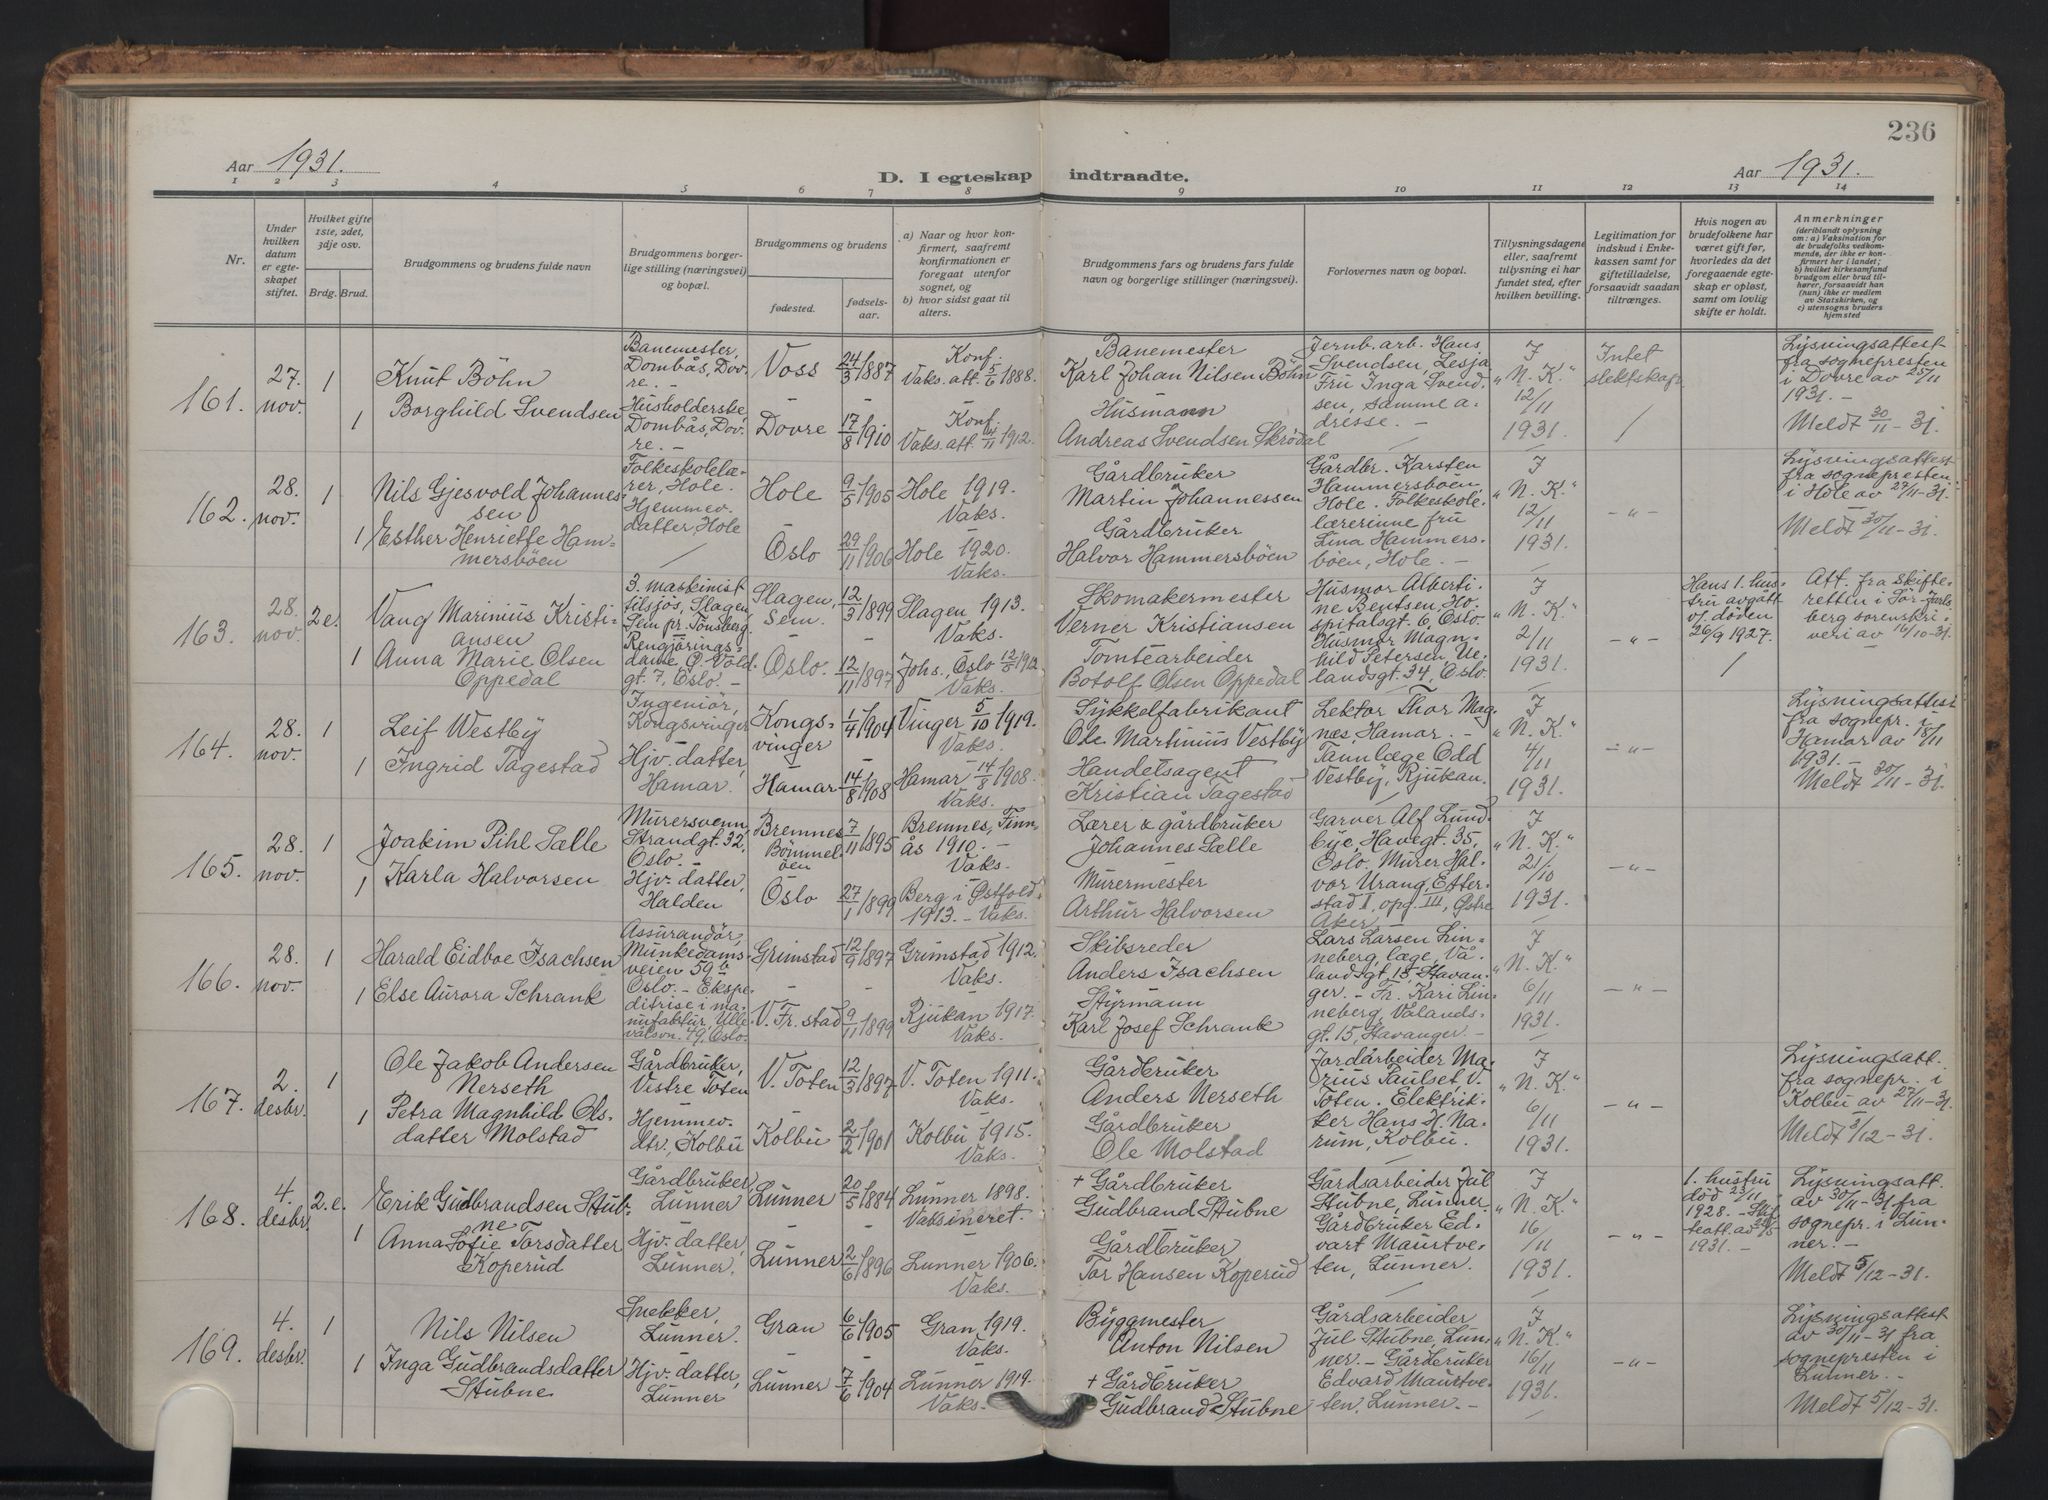 236
Aar 1931.
D. I egteskap indtraadte.
Aar 1931.
1 2 3 4 5 6 7 8 9 10 11 12 13 14
Nr.
Under hvilken datum er egteskapet stiftet.
Hvilket gifte 1ste, 2det, 3dje osv.
Brdg. Brud.
Brudgommens og brudens fulde navn
Brudgommens borgerlige stilling (næringsvei) og bopæl.
Brudgommens og brudens
fødested.
fødselsaar.
a) Naar og hvor konfirmert, saafremt konfirmationen er foregaat utenfor sognet, og
b) hvor sidst gaat til alters.
Brudgommens fars og brudens fars fulde navn og borgerlige stillinger (næringsvei).
Forlovernes navn og bopæl.
Tillysningsdagene eller, saafremt tillysning ei har fundet sted, efter hvilken bevilling.
Legitimation for indskud i Enkekassen samt for giftetilladelse, forsaavidt saadan tiltrænges.
Hvis nogen av brudefolkene har været gift før, hvorledes da det foregaaende egteskap er opløst, samt om lovlig skifte er holdt.
Anmerkninger
(deriblandt oplysning om: a) Vaksination for de brudefolks vedkommende, der ikke er konfirmert her i landet;
b) hvilket kirkesamfund brudgom eller brud tilhører, forsaavidt han (hun) ikke er medlem av Statskirken, og
c) utensogns bruders hjemsted
161. 27. nov. 1
Knut Böhn
Banemester, Dombås, Dovre. -
Voss 24/3 1887
Konf. Vaks. att. 5/6 1888.
Banemester
Karl Johan Nilsen Böhn
Jernb. arb. Hans Svendsen, Lesja
Fru Inga Svendsen, samme adresse. -
I "N. K." 12/11 1931.
Intet slektskap
Lysningsattest fra sognepresten i Dovre av 25/11 1931. -
Meldt 30/11-31.
1 Borghild Svendsen
Husholderske, Dombås, Dovre. -
Dovre 17/8 1910
Konf. Vaks. att. 1912.
Husmann
Andreas Svendsen Skrödal
162. 28. nov. 1
Nils Gjesvold Johannessen
Folkeskolelærer, Hole.
Hole 9/5 1905
Hole 1919. Vaks.
Gårdbruker
Martin Johannessen
Gårdbr. Karsten Hammersböen, Hole. Folkeskolelærerinne fru Lina Hammersböen, Hole. -
I "N. K." 12/11 1931.
- " -
Lysningsattest fra sognepresten i Hole av 27/11-31.
Meldt 30/11-31.
1 Esther Henriette Hammersböen
Hjemmev. datter, Hole
Oslo 29/11 1906
Hole 1920. Vaks.
Gårdbruker
Halvor Hammersböen
163. 28. nov. 2e.
Vang Marinius Kristiansen
3. maskinist tilsjös, Slagen, Sem pr. Tönsberg.
Slagen, Sem. 12/3 1899
Slagen 1913. Vaks.
Skomakermester
Verner Kristiansen
Husmor Albertine Bentsen, Hospitalsgt. 6, Oslo.
Husmor Magnhild Petersen, Uelandsgt. 34, Oslo.
I "N. K." 2/11 1931.
- " -
Hans 1. hustru avgått v/ döden 26/9 1927.
Att. fra skifteretten i Sör-Jarlsberg sorenskriveri av 16/10-31.
1 Anna Marie Olsen Oppedal
Rengjöringsdame, Ö. Voldgt. 7, Oslo. -
Oslo. 12/11 1897
Johs., Oslo 1912 Vaks.
Tomtearbeider
Botolf Olsen Oppedal
164. 28. nov. 1
Leif Westby
Ingeniör, Kongsvinger
Kongsvinger 1/4 1904
Vinger 5/10 1919. Vaks.
Sykkelfabrikant
Ole Martinius Vestby
Lektor Thor Magnes, Hamar. -
Tannlæge Odd Vestby, Rjukan.
I "N. K." 4/11 1931.
- " -
Lysningsattest fra sognepr. i Hamar av 18/11 1931. -
Meldt 30/11-31.
1 Ingrid Tagestad
Hjv. datter, Hamar.
Hamar 14/8 1908
Hamar 14/8 1908. Vaks.
Handelsagent
Kristian Tagestad
165. 28. nov. 1
Joakim Pihl Sælle
Murersvenn, Strandgt. 32, Oslo. -
Bremnes Bömmelöen 7/11 1895
Bremnes, Finnås 1910. - Vaks.
Lærer & gårdbruker
Johannes Sælle
Garver Alf Lundbye, Havegt. 35, Oslo. Murer Halvor Urang, Etterstad II, opg. III, Östre Aker.
I "N. K." 21/10 1931.
- " -
1 Karla Halvorsen
Hjv. datter, Halden
Oslo 27/1 1899
Berg i Østfold 1913. - Vaks.
Murermester
Arthur Halvorsen
166. 28. nov. 1
Harald Eidboe Isachsen
Assurandör, Munkedamsveien 59b Oslo. -
Grimstad 12/9 1897
Grimstad 1912. Vaks.
Skibsreder
Anders Isachsen
Lars Larsen Linneberg, læge, Vålandsgt. 15, Stavanger. - Fr. Kari Linneberg, Vålandsgt. 15, Stavanger. -
I "N. K." 6/11 1931.
- " -
1 Else Aurora Schrank
Ekspeditrise i manufaktur, Ullevålsvn. 49, Oslo.
V. Fr. stad 9/11 1899
Rjukan 1917. Vaks.
Styrmann
Karl Josef Schrank
167. 2. desbr. 1
Ole Jakob Andersen Nerseth
Gårdbruker, Vestre Toten
V. Toten 12/3 1897
V. Toten 1911. Vaks.
Gårdbruker
Anders Nerseth
Jordarbeider Marius Taulset V. Toten. Elektriker Hans H. Narum, Kolbu.
I "N. K." 6/11 1931.
- " -
Lysningsatt. fra sognepr. i Kolbu av 27/11-31.
Meldt 3/12-31.
1 Petra Magnhild Olsdatter Molstad
Hjemmev. dtr., Kolbu
Kolbu 2/2 1901
Kolbu 1915. Vaks.
Gårdbruker
Ole Molstad
168. 4. desbr. 2.e.
Erik Gudbrandsen Stubne
Gårdbruker, Lunner
Lunner 20/5 1884
Lunner 1898. Vaksineret.
+ Gårdbruker
Gudbrand Stubne
Gårdsarbeider Jul Stubne, Lunner.
Gårdbruker Edvart Maurtveten, Lunner.
I "N. K." 16/11 1931.
- " -
1. hustru död 23/11 1928. - Skifteatt. av 1931. -
Lysningsatt. av 30/11-31 fra sognepr. i Lunner. -
Meldt 5/12-31.
1 Anna Sofie Torsdatter Koperud
Hjv. datter, Lunner.
Lunner 2/6 1896
Lunner 1906. Vaks.
Gårdbruker
Tor Hansen Koperud
169. 4. desbr. 1
Nils Nilsen
Snekker, Lunner.
Gran 6/6 1905
Gran 1919. Vaks.
Byggmester
Anton Nilsen
Gårdsarbeider Jul Stubne, Lunner. - Gårdbruker Edvard Maurtveten, Lunner. -
I "N. K." 16/11 1931.
- " -
Lysningsattest av 30/11-31 fra sognepresten i Lunner. -
Meldt 5/12-31.
1 Inga Gudbrandsdatter Stubne
Hjv. datter, Lunner
Lunner 7/6 1904
Lunner 1919. Vaks.
+ Gårdbruker
Gudbrand Stubne